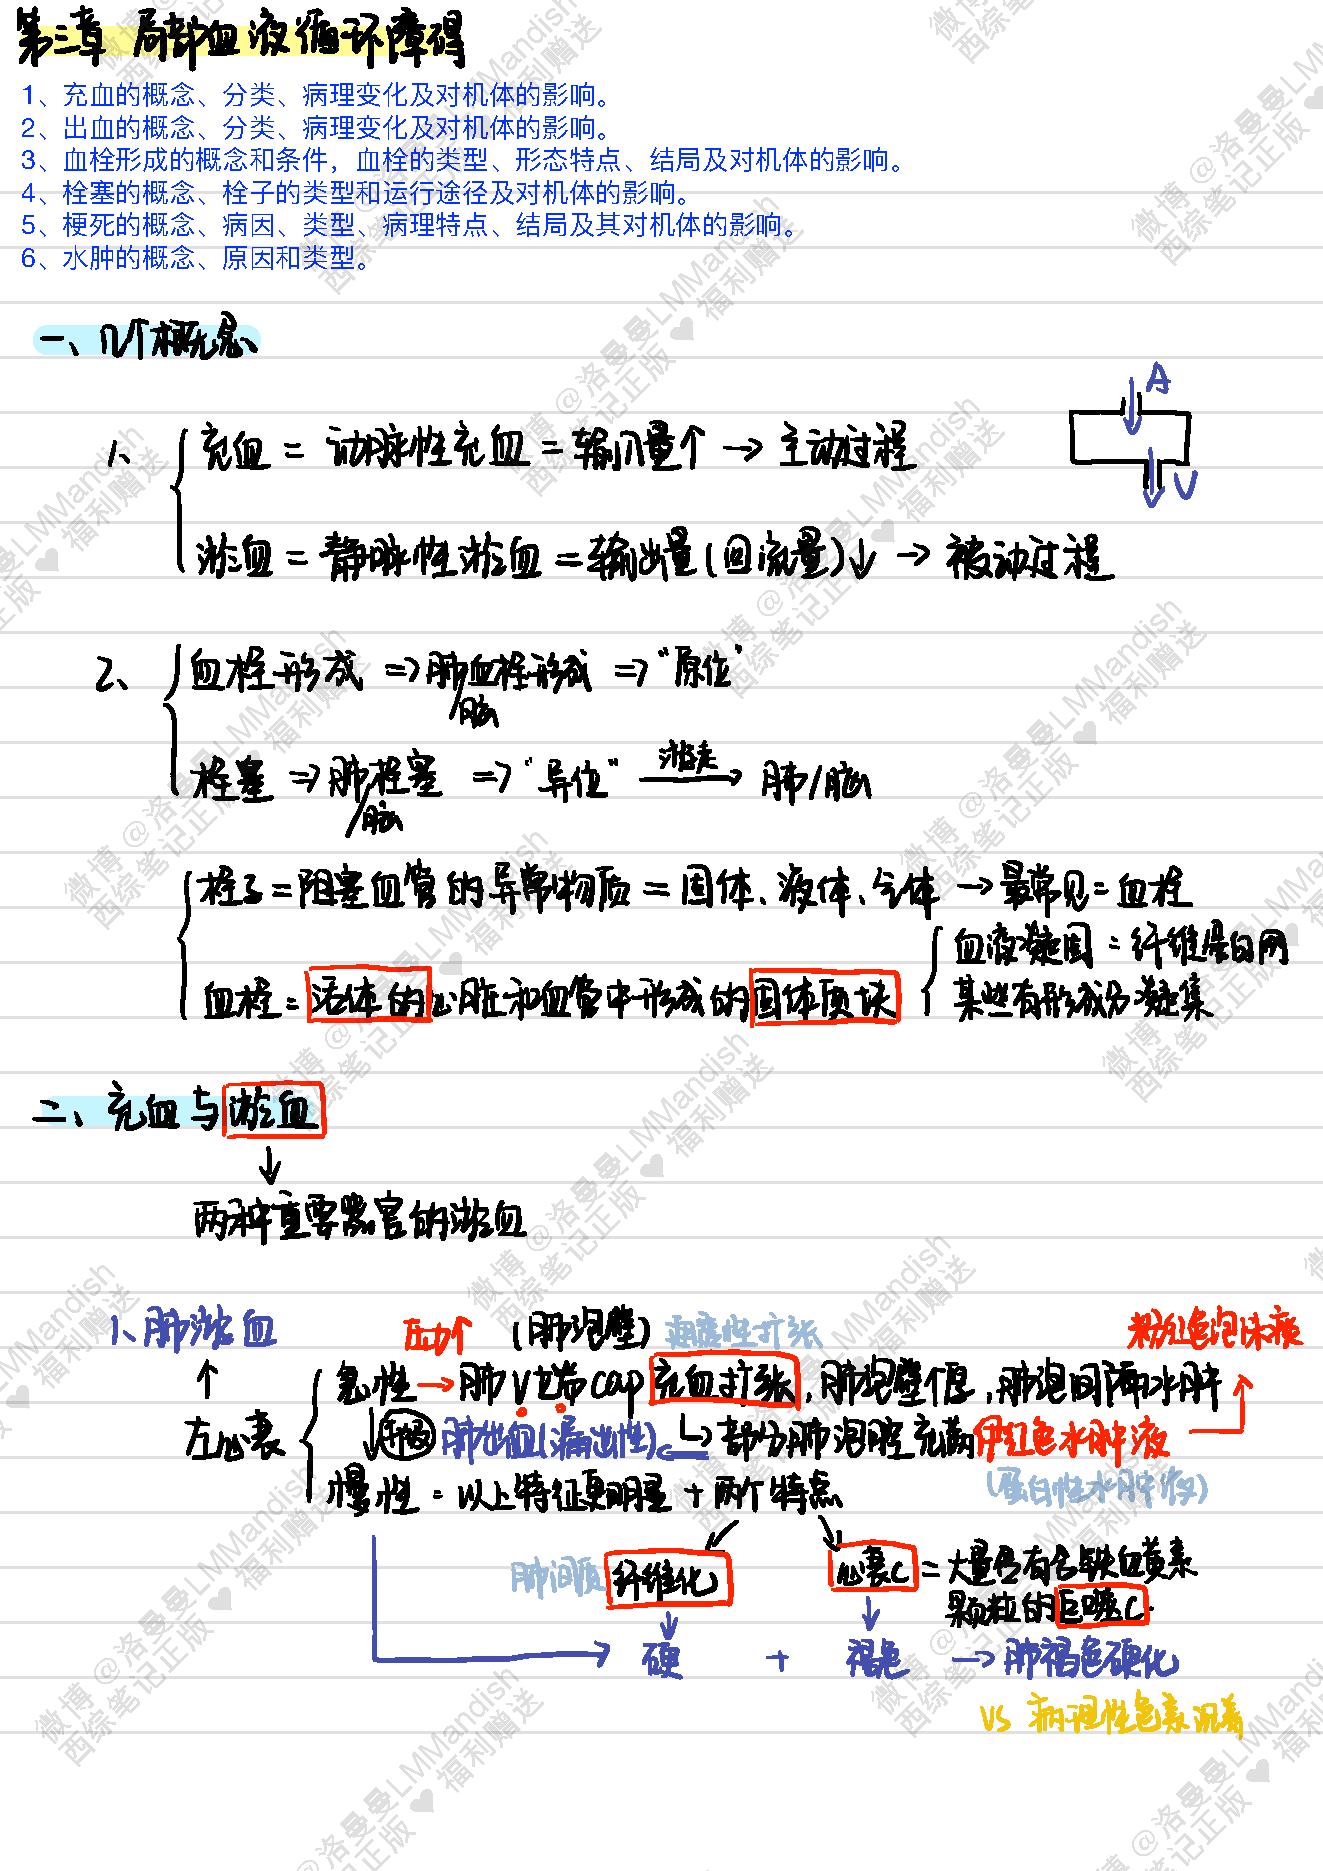 第三章 局部血液循环障碍
1、充血的概念、分类、病理变化及对机体的影响。
2、出血的概念、分类、病理变化及对机体的影响。
3、血栓形成的概念和条件，血栓的类型、形态特点、结局及对机体的影响。
4、栓塞的概念、栓子的类型和运行途径及对机体的影响。
5、梗死的概念、病因、类型、病理特点、结局及其对机体的影响。
6、水肿的概念、原因和类型。
一、几个概念
A
1、 充血 = 动脉性充血 = 输入量↑ → 主动过程
V
淤血 = 静脉性淤血 = 输出量(回流量)↓ → 被动过程
2、 血栓形成 => 肺血栓形成 => "原位"
/脑
栓塞 => 肺栓塞 => "异位" 游走→ 肺/脑
/脑
栓子 = 阻塞血管的异常物质 = 固体、液体、气体 → 最常见 = 血栓
血液凝固 = 纤维蛋白网
血栓 = 活体的心脏和血管中形成的固体质块
某些有形成分凝集
二、充血与淤血
↓
两种重要器官的淤血
1、肺淤血 压力↑ (肺泡壁) 高度性扩张 粉红色泡沫痰
↑ 急性 → 肺V 岂带 cap 充血扩张, 肺泡壁 , 肺泡间隔水肿
左心衰 肺出血(漏出性) ← 部分肺泡腔充满伊红色水肿液
慢性 = 以上特征更明显 + 两个特点 (蛋白性水肿液)
肺间质 纤维化 心衰C = 大量含有含铁血黄素
颗粒的巨噬C.
硬 + 褐色 → 肺褐色硬化
VS 病理性色素沉着
微博 @洛曼曼LMMandish
西综笔记正版 ♥ 福利赠送